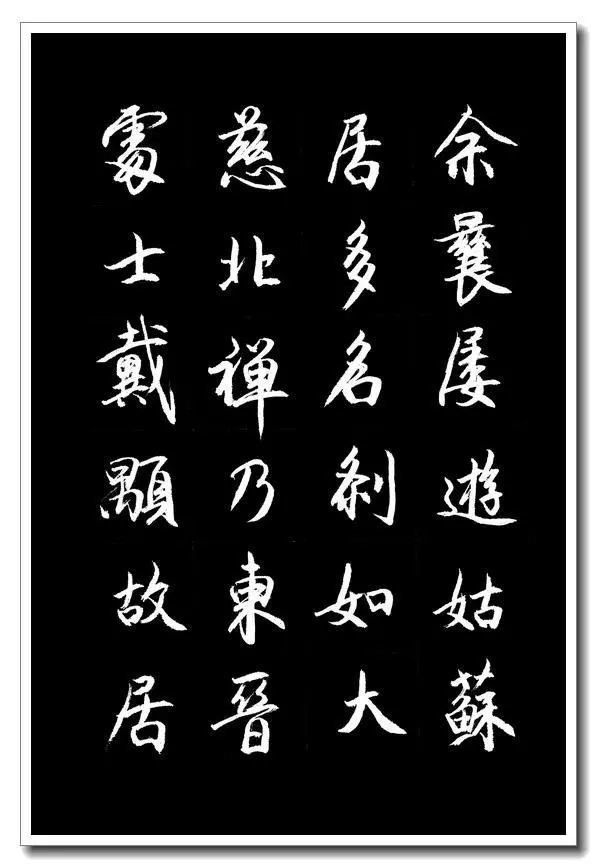 余曩屡遊姑蘇
居多名刹如大
慈北禅乃東晉
處士戴顒故居